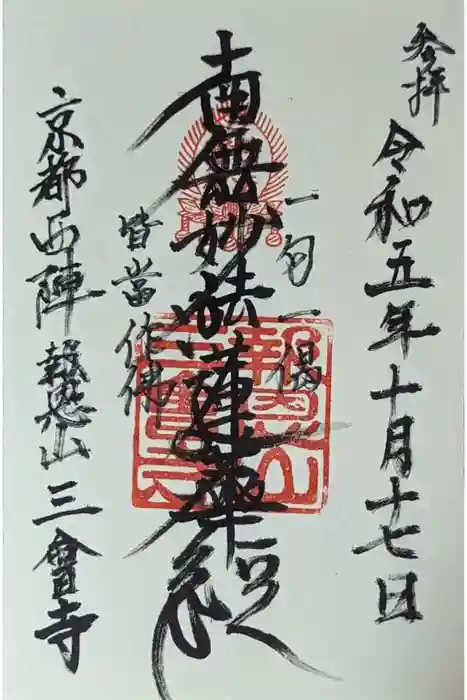 参拝
令和五年十月十七日
一句一偈
南無妙法蓮華経
皆當作佛
京都西陣 報恩山 三會寺